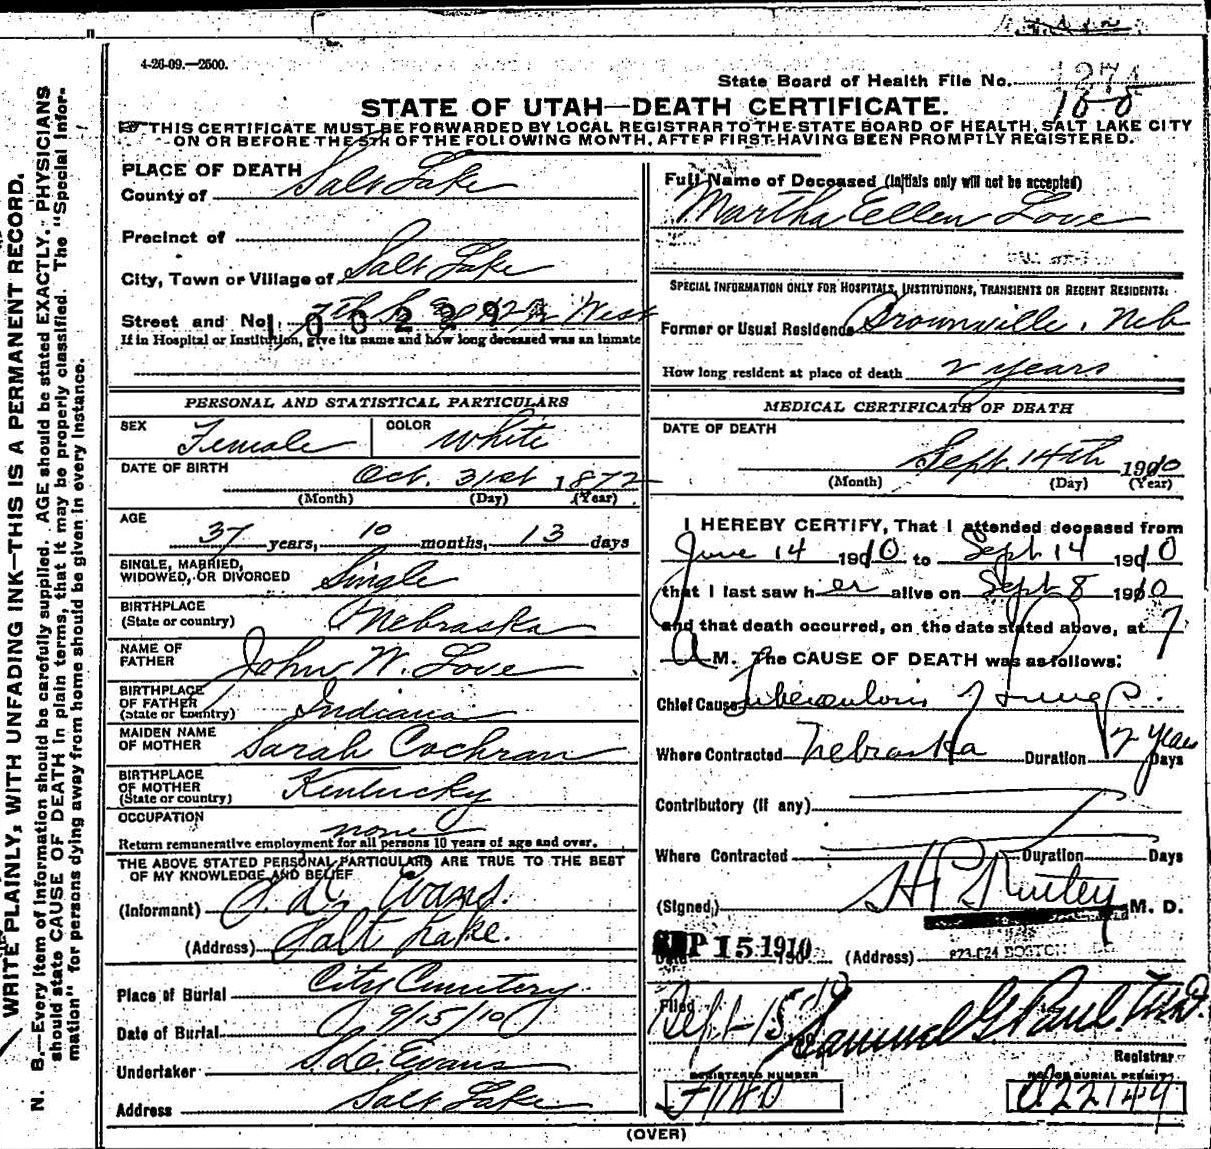 4-26-09.—2500.
State Board of Health File No. 1274
STATE OF UTAH—DEATH CERTIFICATE.
THIS CERTIFICATE MUST BE FORWARDED BY LOCAL REGISTRAR TO THE STATE BOARD OF HEALTH, SALT LAKE CITY
ON OR BEFORE THE 5TH OF THE FOLLOWING MONTH, AFTER FIRST HAVING BEEN PROMPTLY REGISTERED.
WRITE PLAINLY, WITH UNFADING INK—THIS IS A PERMANENT RECORD.
N. B.—Every item of information should be carefully supplied. AGE should be stated EXACTLY. PHYSICIANS
should state CAUSE OF DEATH in plain terms, that it may be properly classified. The "Special Infor-
mation" for persons dying away from home should be given in every instance.
PLACE OF DEATH
County of Salt Lake
Precinct of
City, Town or Village of Salt Lake
Street and No. 7th So 2 West
If in Hospital or Institution, give its name and how long deceased was an inmate
PERSONAL AND STATISTICAL PARTICULARS
SEX Female COLOR White
DATE OF BIRTH Oct. 31st 1872
(Month) (Day) (Year)
AGE 37 years, 10 months, 13 days
SINGLE, MARRIED,
WIDOWED, OR DIVORCED Single
BIRTHPLACE
(State or country) Nebraska
NAME OF
FATHER John W. Love
BIRTHPLACE
OF FATHER
(State or country) Indiana
MAIDEN NAME
OF MOTHER Sarah Cochran
BIRTHPLACE
OF MOTHER
(State or country) Kentucky
OCCUPATION none
Return remunerative employment for all persons 10 years of age and over.
THE ABOVE STATED PERSONAL PARTICULARS ARE TRUE TO THE BEST
OF MY KNOWLEDGE AND BELIEF
(Informant) Evans.
(Address) Salt Lake.
Place of Burial City Cemetery.
Date of Burial 9/15/10
Undertaker S. D. Evans
Address Salt Lake
Full Name of Deceased (Initials only will not be accepted)
Martha Ellen Love
SPECIAL INFORMATION ONLY FOR HOSPITALS, INSTITUTIONS, TRANSIENTS OR RECENT RESIDENTS:
Former or Usual Residence Brownville, Neb
How long resident at place of death 2 years
MEDICAL CERTIFICATE OF DEATH
DATE OF DEATH
Sept. 14th 1910
(Month) (Day) (Year)
I HEREBY CERTIFY, That I attended deceased from
June 14 1910 to Sept 14 1910
that I last saw her alive on Sept 8 1910
and that death occurred, on the date stated above, at 7
A M. The CAUSE OF DEATH was as follows:
Chief Cause Tuberculosis of Lungs.
Where Contracted Nebraska Duration 2 years Days
Contributory (if any)
Where Contracted Duration Days
(Signed) M. D.
SEP 15 1910 (Address) 823-824 BOSTON
Filed Sept-15 10 Samuel G Paul. M.D.
Registrar
REGISTERED NUMBER NO. OF BURIAL PERMIT
F1140 022149
(OVER)